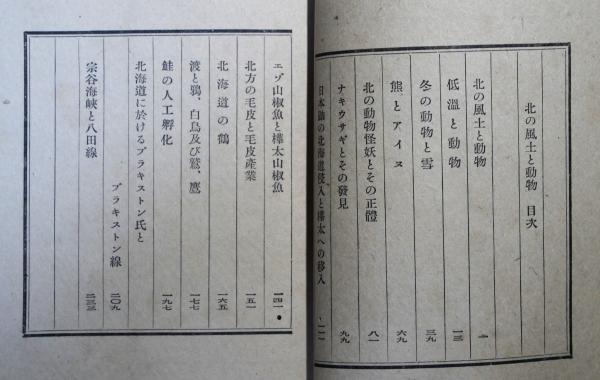 北の風土と動物 目次
北の風土と動物 一
低溫と動物 一三
冬の動物と雪 三九
熊とアイヌ 六九
北の動物怪妖とその正體 八一
ナキウサギとその發見 九九
日本鼬の北海道侵入と樺太への移入
エゾ山椒魚と樺太山椒魚 一四一
北方の毛皮と毛皮產業 一五一
北海道の鶴 一六五
渡と鴉、白鳥及び鷲、鷹 一七七
鮭の人工孵化 一九七
北海道に於けるブラキストン氏と
ブラキストン線 二〇九
宗谷海峽と八田線 二三三